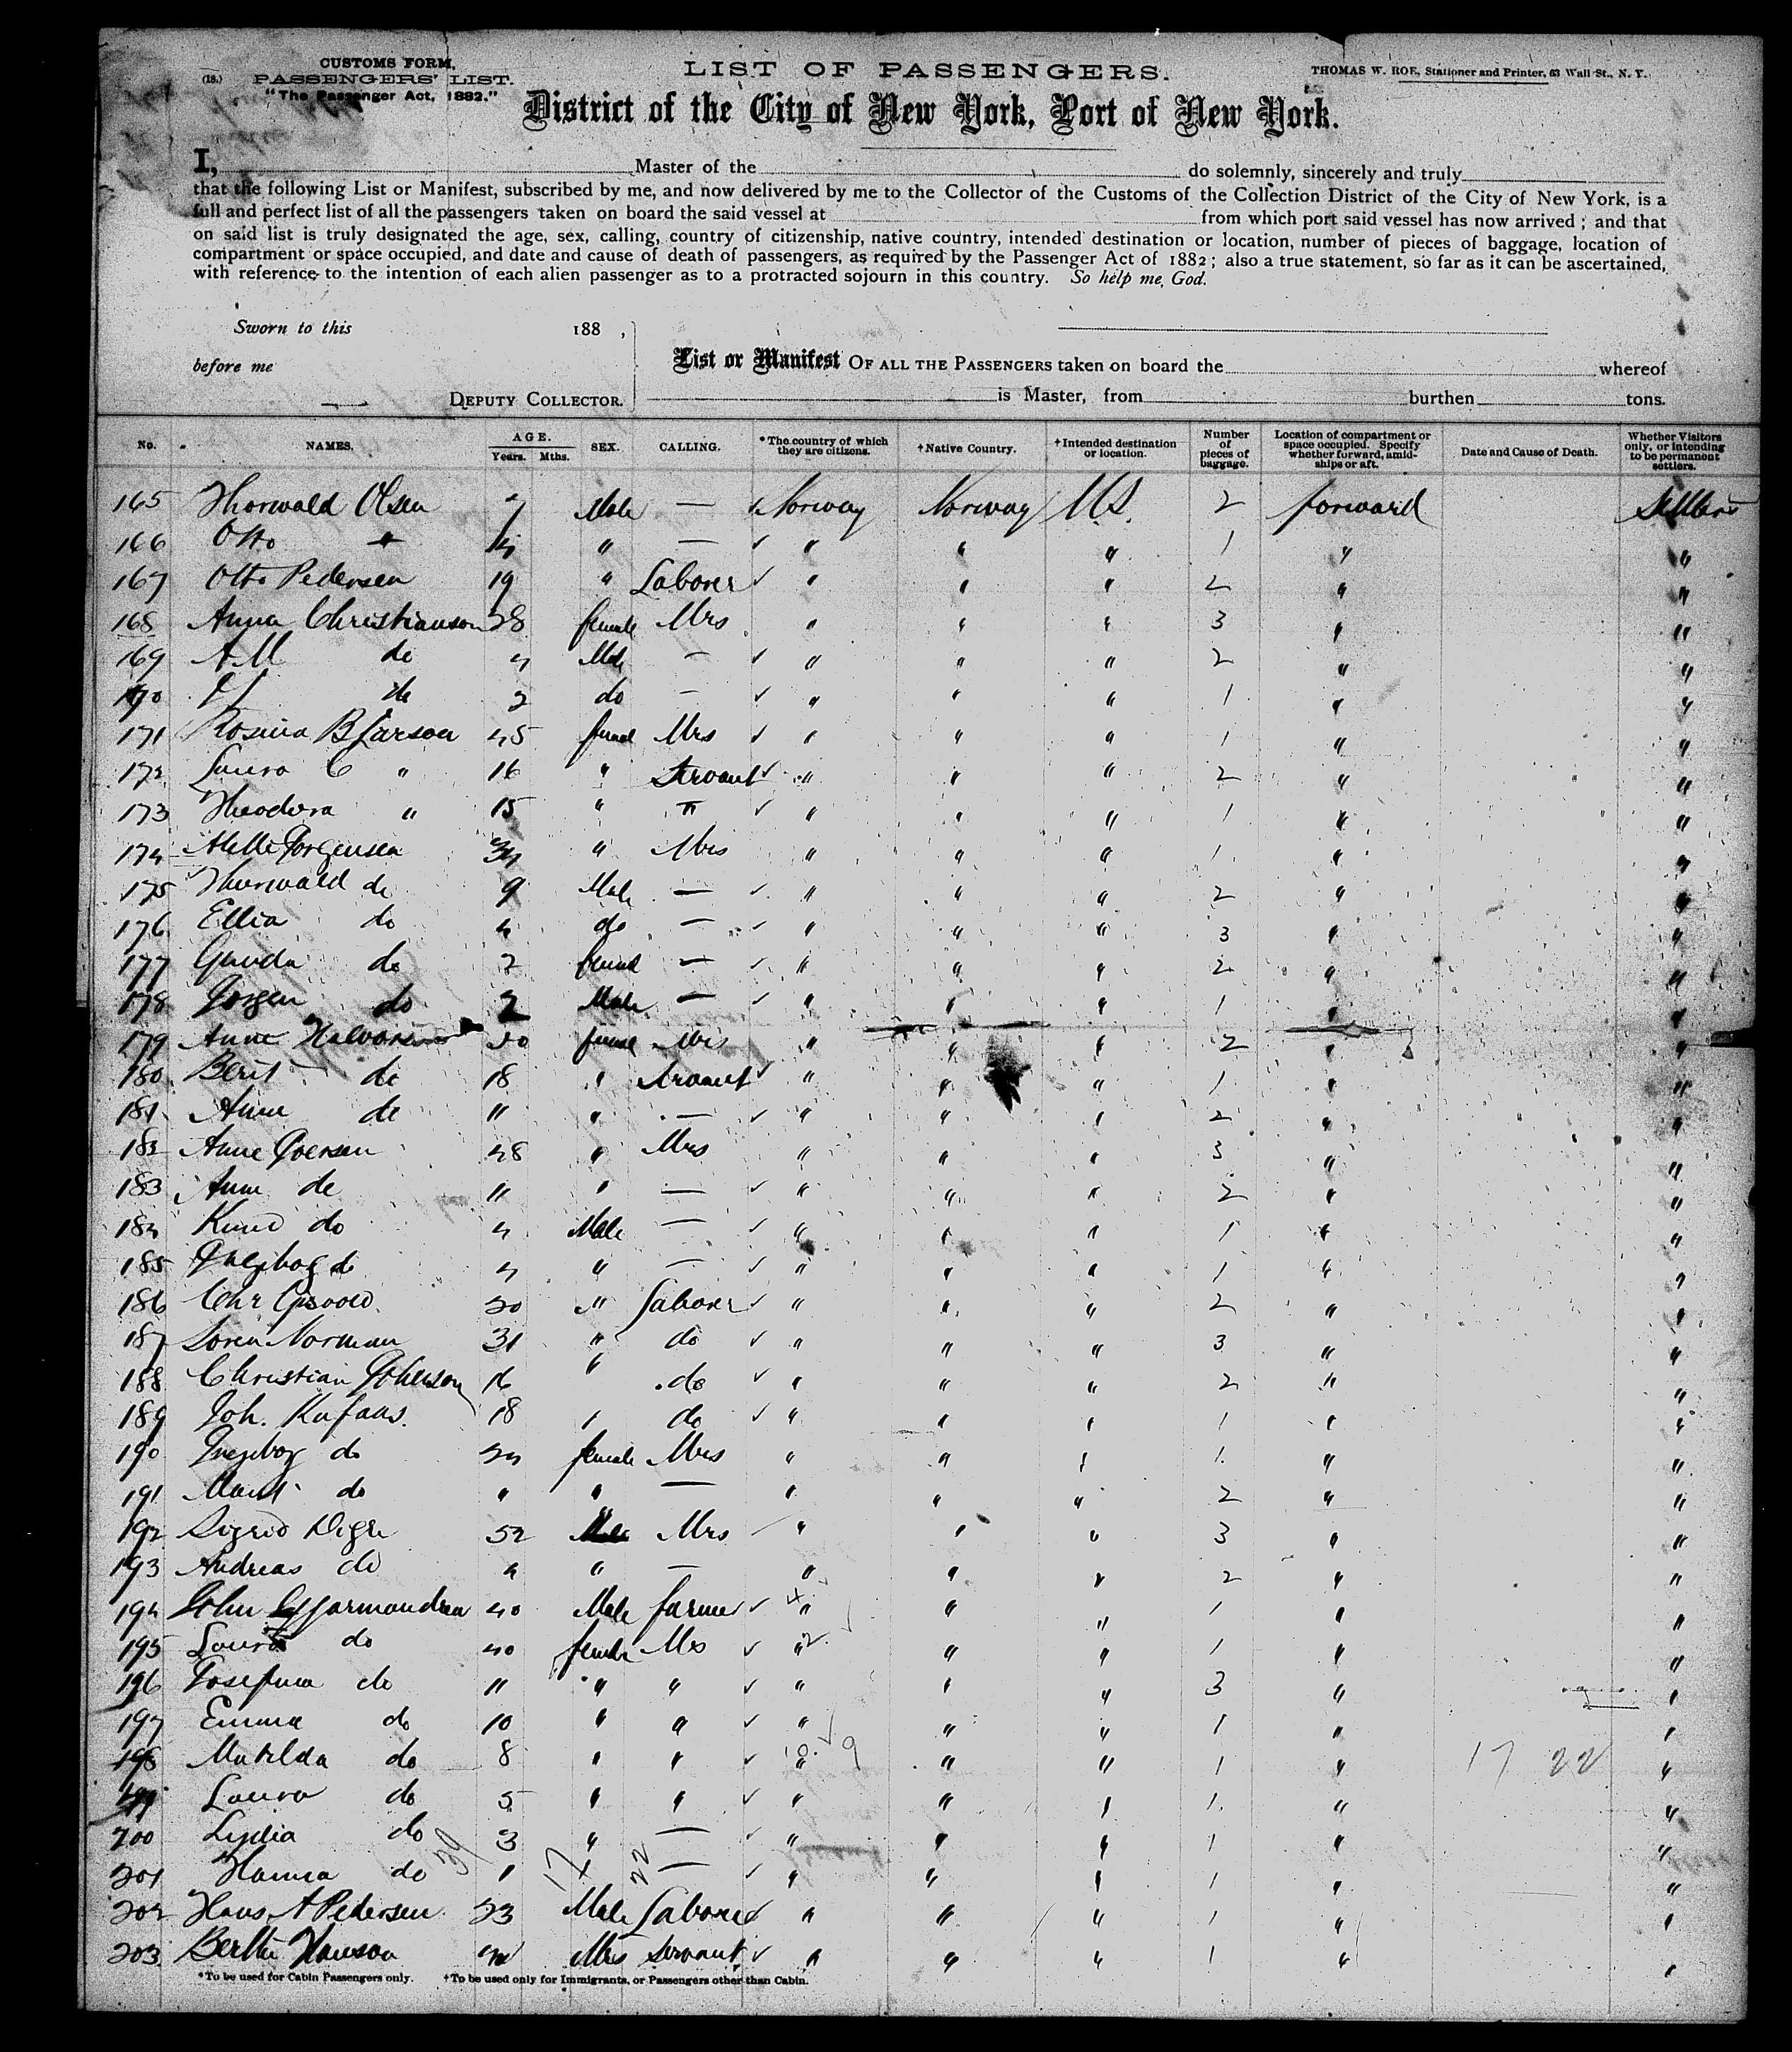 CUSTOMS FORM.
(18.) PASSENGERS' LIST.
"The Passenger Act, 1882."
LIST OF PASSENGERS.
THOMAS W. ROE, Stationer and Printer, 63 Wall St., N. Y.
District of the City of New York, Port of New York.
I, Master of the do solemnly, sincerely and truly
that the following List or Manifest, subscribed by me, and now delivered by me to the Collector of the Customs of the Collection District of the City of New York, is a
full and perfect list of all the passengers taken on board the said vessel at from which port said vessel has now arrived; and that
on said list is truly designated the age, sex, calling, country of citizenship, native country, intended destination or location, number of pieces of baggage, location of
compartment or space occupied, and date and cause of death of passengers, as required by the Passenger Act of 1882; also a true statement, so far as it can be ascertained,
with reference to the intention of each alien passenger as to a protracted sojourn in this country. So help me, God.
Sworn to this 188 ,
before me
DEPUTY COLLECTOR.
List or Manifest OF ALL THE PASSENGERS taken on board the whereof
is Master, from burthen tons.
No. NAMES. AGE. Years. Mths. SEX. CALLING. *The country of which they are citizens. †Native Country. †Intended destination or location. Number of pieces of baggage. Location of compartment or space occupied. Specify whether forward, amidships or aft. Date and Cause of Death. Whether Visitors only, or intending to be permanent settlers.
165 Thorwald Olsen 7 Male — Norway Norway U.S. 2 forward Settlers
166 Otto " " — " " " 1 " "
167 Otto Pedersen 19 " Laborer " " " 2 " "
168 Anna Christianson 28 female Mrs " " " 3 " "
169 A M do 4 Male — " " " 2 " "
170 do 2 do — " " " 1 " "
171 Rosina B Larson 45 female Mrs " " " 1 " "
172 Laura C " 16 " Servant " " " 2 " "
173 Theodora " 15 " " " " " 1 " "
174 Mette Jorgensen 34 " Mrs " " " 1 " "
175 Thorwald do 9 Male — " " " 2 " "
176 Ellia do 4 do — " " " 3 " "
177 do 2 female — " " " 2 " "
178 Jorgen do 2 Male — " " " 1 " "
179 Anne Halvorsen 50 female Mrs " " " 2 " "
180 Berit do 18 " Servant " " " 1 " "
181 Anne do 11 " — " " " 2 " "
182 Anne Iversen 48 " Mrs " " " 3 " "
183 Anne do 11 " — " " " 2 " "
184 Knud do 4 Male — " " " 1 " "
185 Ingebog do 4 " — " " " 1 " "
186 Chr 20 " Laborer " " " 2 " "
187 Soren Norman 31 " do " " " 3 " "
188 Christian Johenson 16 " do " " " 2 " "
189 Joh. Kufaas. 18 " do " " " 1 " "
190 Ingebog do 24 female Mrs " " " 1 " "
191 Marit do " " — " " " 2 " "
192 Sigrid Digre 52 Mrs " " " 3 " "
193 Andreas do 9 " — " " " 2 " "
194 John 40 Male farmer " " " 1 " "
195 Laura do 40 female Mrs " " " 1 " "
196 Josefina do 11 " " " " " 3 " "
197 Emma do 10 " " " " " 1 " "
198 Matilda do 8 " " " " " 1 " 17 22 "
199 Laura do 5 " " " " " 1 " "
200 Lydia do 3 " — " " " 1 " "
201 Hanna do 1 — " " " 1 " "
39 17 22
202 Hans A Pedersen 23 Male Laborer " " " 1 " "
203 Berthe Hanson Mrs Servant " " " 1 " "
*To be used for Cabin Passengers only. †To be used only for Immigrants, or Passengers other than Cabin.